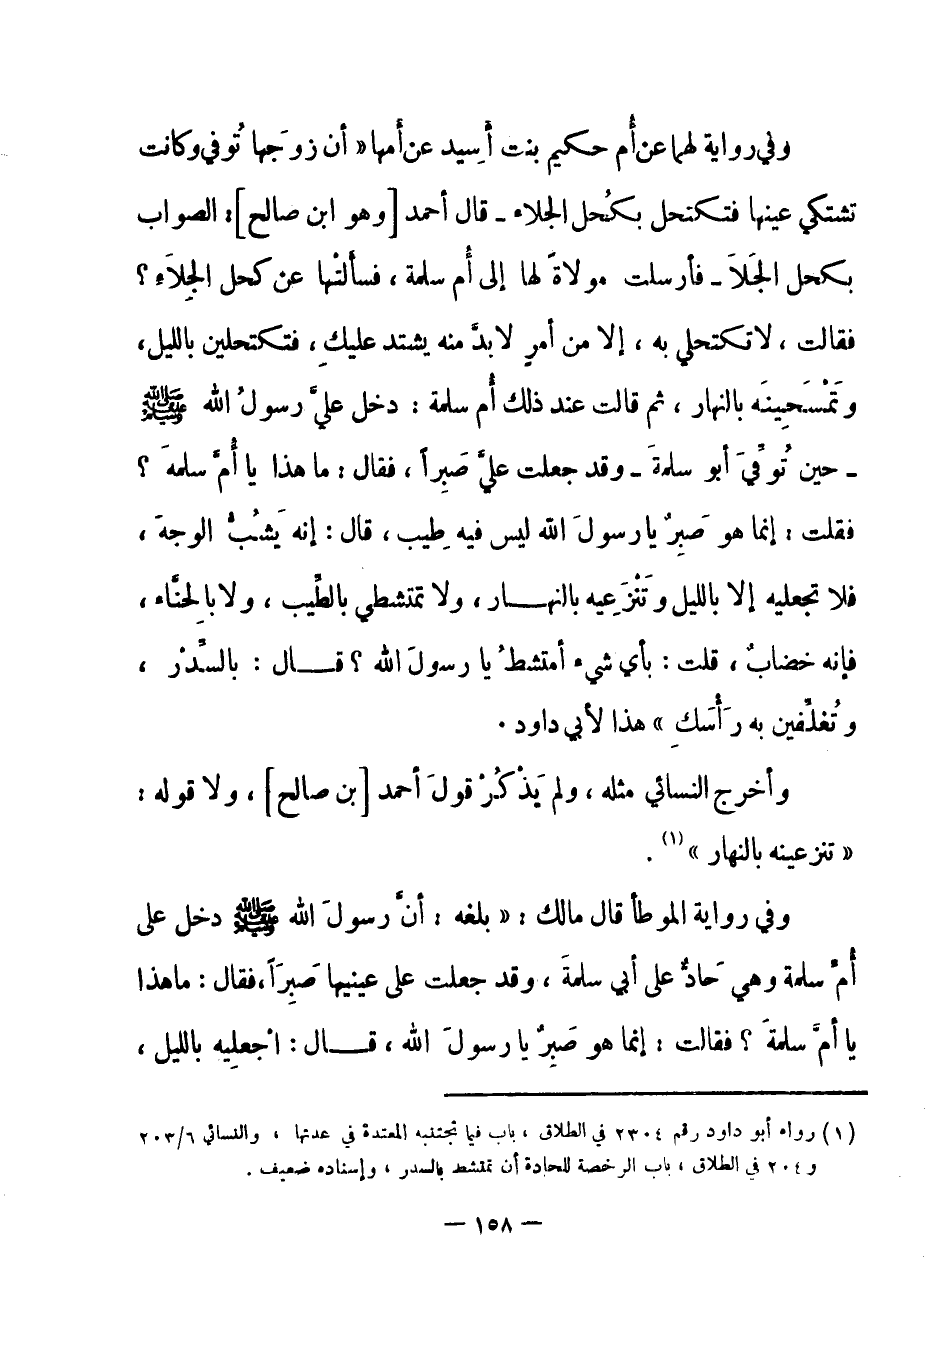 وفي رواية لهما عن أُم حكيم بنت أَسِيد عن أُمها « أن زوجَها تُوفي وكانت
تشتكي عينها فتكتحل بكُحل الجلاء - قال أحمد [ وهو ابن صالح ] : الصواب
بكحل الجَلاَ - فأرسلت مولاةً لها إلى أُم سلمة ، فسألتْها عن كحل الجِلاَءِ ؟
فقالت ، لا تكتحلي به ، إلا من أمرٍ لا بدَّ منه يشتد عليكِ ، فتكتحلين بالليل ،
وتَمْسَحِينَه بالنهار ، ثم قالت عند ذلك أُم سلمة : دخل عليَّ رسولُ الله ﷺ
- حين تُوفِّيَ أبو سلمةَ - وقد جعلت عليَّ صَبِراً ، فقال : ما هذا يا أُمَّ سلمهَ ؟
فقلت : إنما هو صَبِرٌ يا رسولَ الله ليس فيه طِيب ، قال : إنه يَشُبُّ الوجهَ ،
فلا تجعليه إلا بالليل وتَنْزَعِيه بالنهـــار ، ولا تمتشطي بالطِّيب ، ولا بالحِنَّاء ،
فإنه خضابٌ ، قلت : بأي شيء أمتشطُ يا رسولَ الله ؟ قـــال : بالسِّدْر ،
وتُغلِّفين به رَأْسَكِ » هذا لأبي داود .
وأخرج النسائي مثله ، ولم يَذْكُرْ قولَ أحمد [ بن صالح ] ، ولا قوله :
« تنزعينه بالنهار » (١) .
وفي رواية الموطأ قال مالك : « بلغه : أنَّ رسولَ الله ﷺ دخل على
أُمِّ سلمة وهي حَادٌّ على أبي سلمةَ ، وقد جعلت على عينيها صَبِرَاً ، فقال : ماهذا
يا أمَّ سلمةَ ؟ فقالت : إنما هو صَبِرٌ يا رسولَ الله ، قـــال : اجعلِيه بالليل ،
(١) رواه أبو داود رقم ٢٣٠٤ في الطلاق ، باب فيما تجتنبه المعتدة في عدتها ، والنسائي ٢٠٣/٦
و ٢٠٤ في الطلاق ، باب الرخصة للحادة أن تمتشط بالسدر ، وإسناده ضعيف .
— ١٥٨ —